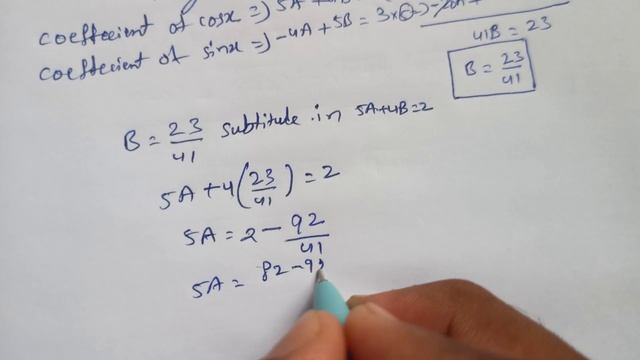 coeffecient of cosx => 5A +
coeffecient of sinx => -4A + 5B = 3 × ②
41B = 23
B = 23/41
B = 23/41 subtitute in 5A+4B=2
5A + 4(23/41) = 2
5A = 2 - 92/41
5A = 82 - 9